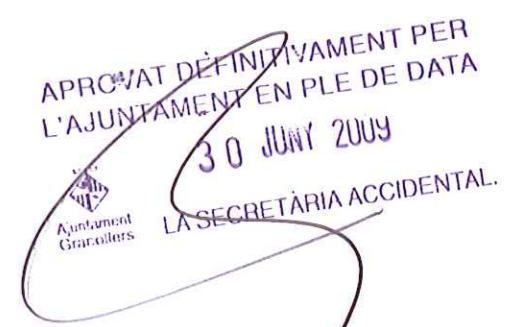 APROVAT DEFINITIVAMENT PER
L'AJUNTAMENT EN PLE DE DATA
30 JUNY 2009
Ajuntament
Granollers
LA SECRETÀRIA ACCIDENTAL.